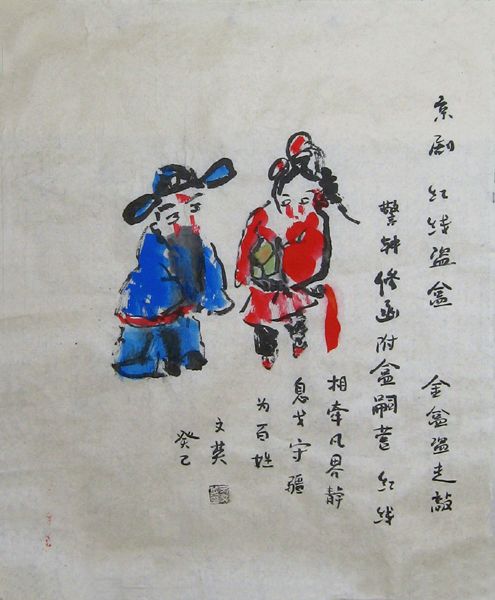 京剧 红线盗盒 金盒盗走敲
警钟修函附盒嗣营 红线
相牵凡界静
息戈守疆
为百姓
文英
癸巳